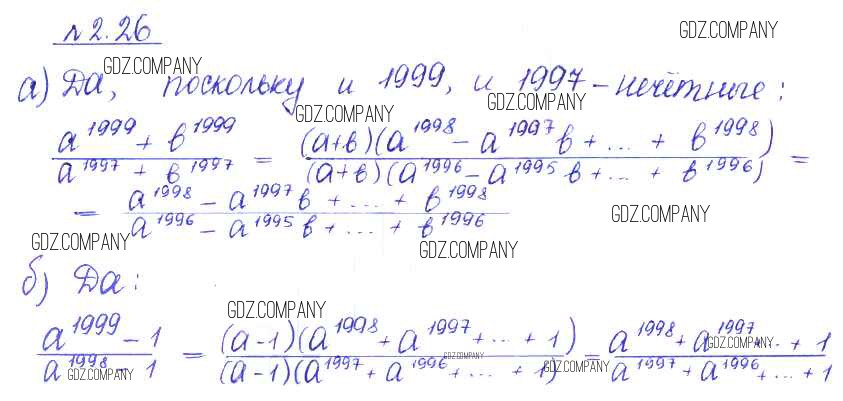 №2.26
GDZ.COMPANY
GDZ.COMPANY
а) Да, поскольку и 1999, и 1997 – нечётные:
GDZ.COMPANY
GDZ.COMPANY
(a^1999 + b^1999)/(a^1997 + b^1997) = ((a+b)(a^1998 – a^1997 b + ... + b^1998))/((a+b)(a^1996 – a^1995 b + ... + b^1996)) =
= (a^1998 – a^1997 b + ... + b^1998)/(a^1996 – a^1995 b + ... + b^1996)
GDZ.COMPANY
GDZ.COMPANY
GDZ.COMPANY
б) Да:
GDZ.COMPANY
(a^1999 – 1)/(a^1998 – 1) = ((a-1)(a^1998 + a^1997 + ... + 1))/((a-1)(a^1997 + a^1996 + ... + 1)) = (a^1998 + a^1997 + ... + 1)/(a^1997 + a^1996 + ... + 1)
GDZ.COMPANY
GDZ.COMPANY
GDZ.COMPANY
GDZ.COMPANY